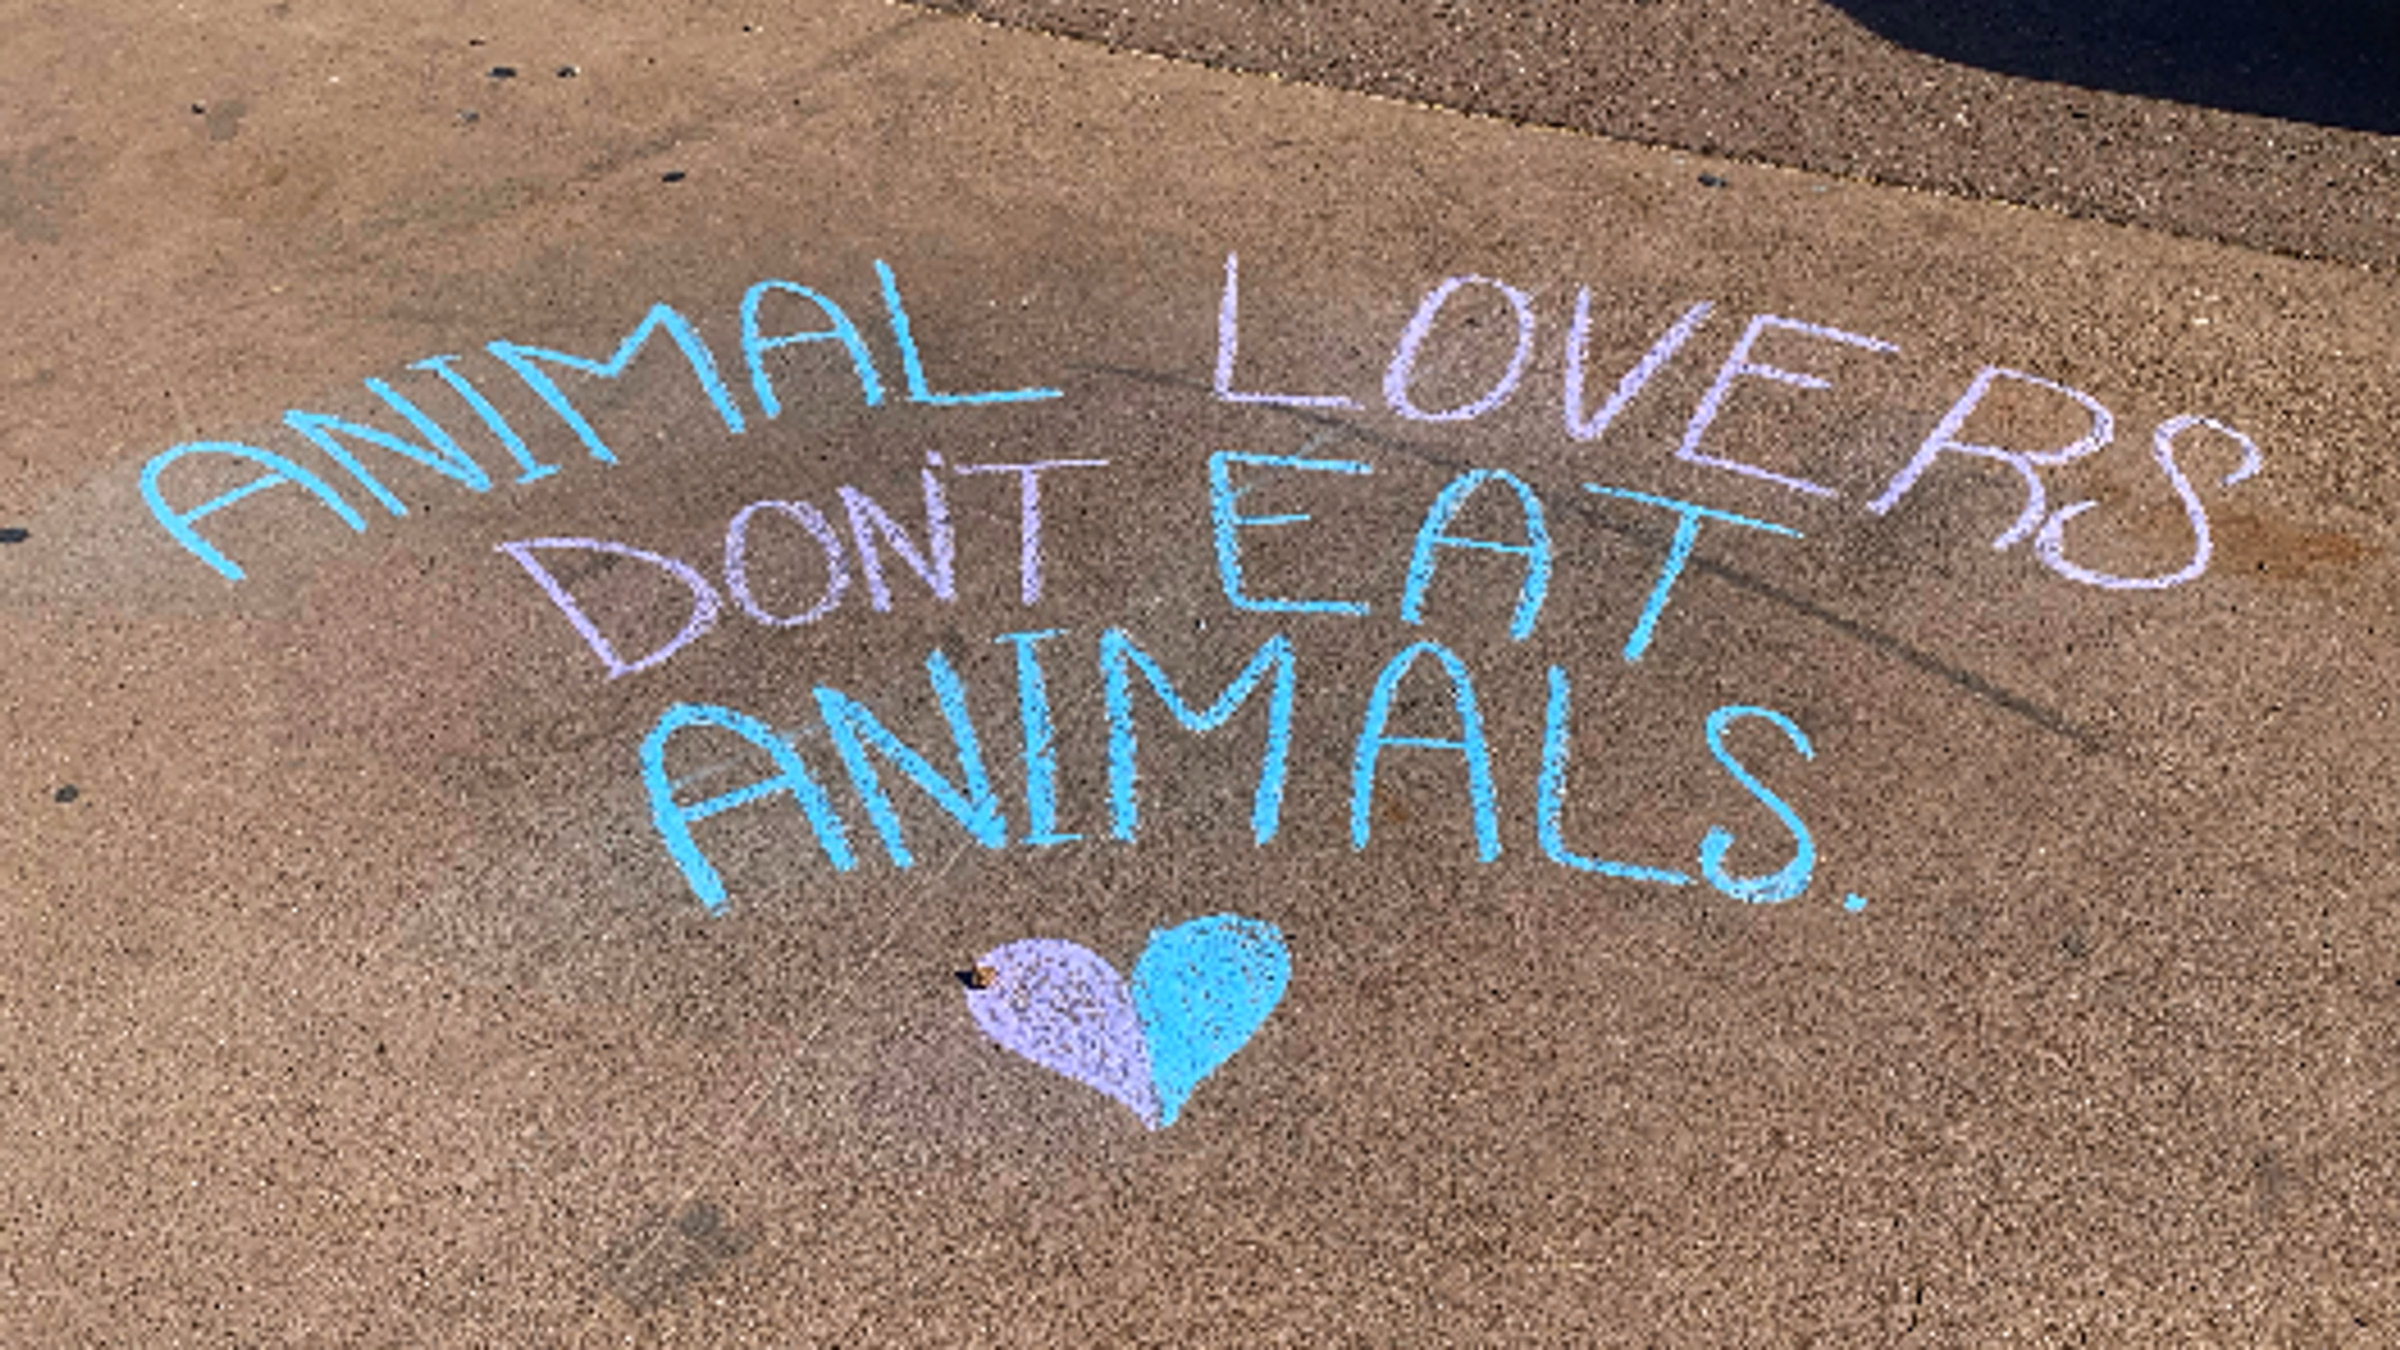 ANIMAL LOVERS
DON'T EAT
ANIMALS.